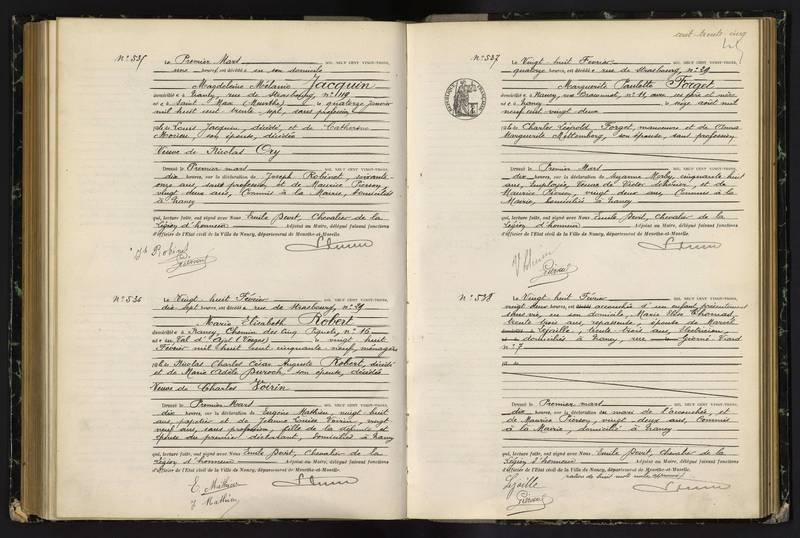 N° 535
Le Premier Mars MIL NEUF CENT VINGT-TROIS,
heures, est décédée en son domicile
Magdeleine Mélanie Jacquin
domiciliée à Nancy, rue de Strasbourg, n° 119
née à Saint Max (Meurthe) le quatorze janvier
mil huit cent trente sept, sans profession
fille de Louis Jacquin, décédé, et de Catherine
son épouse, décédée
Veuve de Nicolas Ory
Dressé le Premier mars MIL NEUF CENT VINGT-TROIS,
dix heures, sur la déclaration de Joseph Robinet, soixante-
onze ans, sans profession, et de Maurice Piersoy,
vingt deux ans, Commis à la Mairie, domiciliés
à Nancy
qui, lecture faite, ont signé avec Nous Emile Devit, Chevalier de la
Légion d'honneur Adjoint au Maire, délégué faisant fonctions
d'officier de l'Etat civil de la Ville de Nancy, département de Meurthe-et-Moselle.
N° 536
Le Vingt huit Février MIL NEUF CENT VINGT-TROIS,
dix sept heures, est décédée rue de Strasbourg, n° 29
Marie Elisabeth Robert
domiciliée à Nancy, Chemin des Cinq Piquets, n° 16
née au Val d'Ajol (Vosges) le vingt huit
Février mil huit cent cinquante neuf, ménagère
fille de Nicolas Charles César Auguste Robert, décédé
et de Marie Adèle Duroch, son épouse, décédée
Veuve de Charles Voirin
Dressé le Premier Mars MIL NEUF CENT VINGT-TROIS,
dix heures, sur la déclaration de Eugène Mathieu, vingt huit
ans, papetier et de Jeanne Louise Voirin, vingt
neuf ans, sans profession, fille de la défunte et
épouse du premier déclarant, domiciliés à Nancy
qui, lecture faite, ont signé avec Nous Emile Devit, Chevalier de la
Légion d'honneur Adjoint au Maire, délégué faisant fonctions
d'officier de l'Etat civil de la Ville de Nancy, département de Meurthe-et-Moselle.
E. Mathieu
J. Mathieu
cent trente cinq
N° 537
Le Vingt huit Février MIL NEUF CENT VINGT-TROIS,
quatorze heures, est décédée rue de Strasbourg, n° 29
Marguerite Paulette Forget
domiciliée à Nancy, rue n° 11, avec ses père et mère
née à Nancy le seize août mil
neuf cent vingt deux
fille de Charles Léopold Forget, manœuvre et de
Marguerite son épouse, sans profession
Dressé le Premier Mars MIL NEUF CENT VINGT-TROIS,
dix heures, sur la déclaration de Suzanne cinquante huit
ans, Employée, Veuve de Victor et de
Maurice Piersoy, vingt deux ans, Commis à la
Mairie, domiciliés à Nancy
qui, lecture faite, ont signé avec Nous Emile Devit, Chevalier de la
Légion d'honneur Adjoint au Maire, délégué faisant fonctions
d'officier de l'Etat civil de la Ville de Nancy, département de Meurthe-et-Moselle.
N° 538
Le Vingt huit Février MIL NEUF CENT VINGT-TROIS,
vingt deux heures, est accouchée d'un enfant présentement
sans vie, en son domicile, Marie Elise Thomas,
trente trois ans, repasseuse, épouse de Marcel
Lejaille, trente trois ans, Electricien,
domiciliés à Nancy, rue Grand Viard
n° 7
Dressé le Premier mars MIL NEUF CENT VINGT-TROIS,
dix heures, sur la déclaration du mari de l'accouchée, et
de Maurice Piersoy, vingt deux ans, Commis
à la Mairie, domicilié à Nancy
qui, lecture faite, ont signé avec Nous Emile Devit, Chevalier de la
Légion d'honneur Adjoint au Maire, délégué faisant fonctions
d'officier de l'Etat civil de la Ville de Nancy, département de Meurthe-et-Moselle.
Lejaille